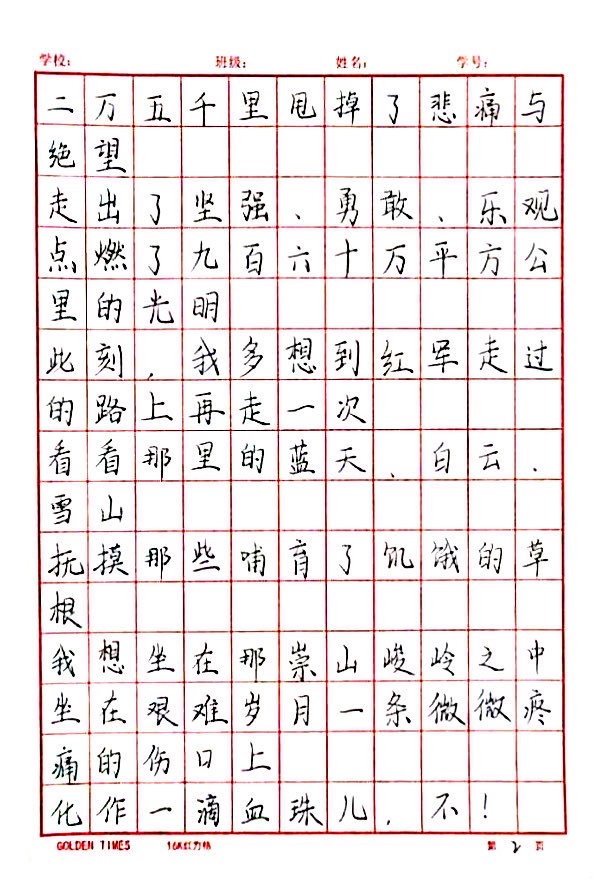 学校： 班级： 姓名： 学号：
二万五千里甩掉了悲痛与
绝望
走出了坚强、勇敢、乐观
点燃了九百六十万平方公
里的光明
此刻，我多想到红军走过
的路上再走一次
看看那里的蓝天、白云、
雪山
抚摸那些哺育了饥饿的草
根
我想坐在那崇山峻岭之中
坐在艰难岁月一条微微疼
痛的伤口上
化作一滴血珠儿，不！
GOLDEN TIMES 16K红方格 第 2 页